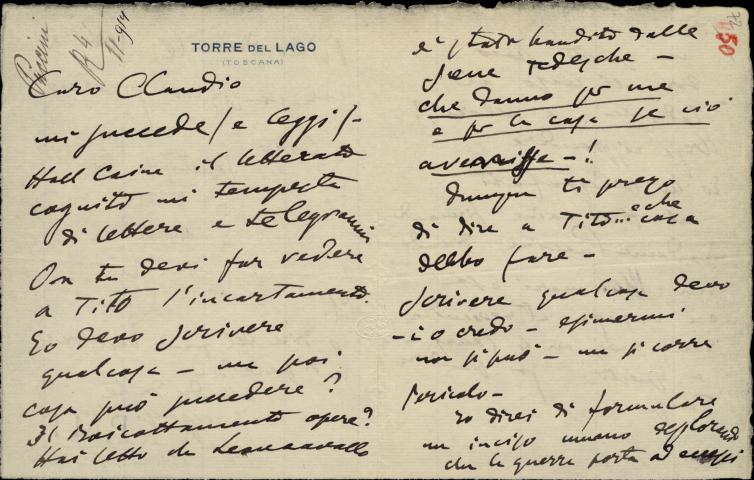 Puccini
R 4/11-914
TORRE DEL LAGO
(TOSCANA)
Caro Claudio
mi succede (e leggi) -
Hall Caine il letterato
cognito mi tempesta
di lettere e telegrammi
Ora tu devi far vedere
a Tito l'incartamento.
Io devo scrivere
qualcosa - ma poi
cosa può succedere?
Il boicottamento opere?
Hai letto che Leoncavallo
150
è stato bandito dalle
scene tedesche -
che danno per me
e per la casa se ciò
avvenisse - !
dunque ti prego
di dire a Tito... che cosa
debbo fare -
Scrivere qualcosa devo
- io credo - esimermi
non si può - ma si corre
pericolo -
Io direi di formulare
un inciso umano deplorando
che la guerra porta ad